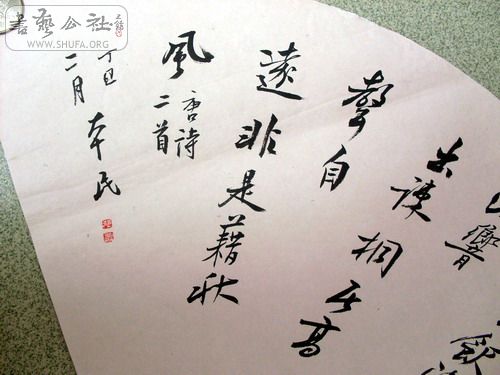 書藝公社
WWW.SHUFA.ORG
響
出疎桐居高
聲自
遠非是藉秋
風
唐詩
二首
二月
本民